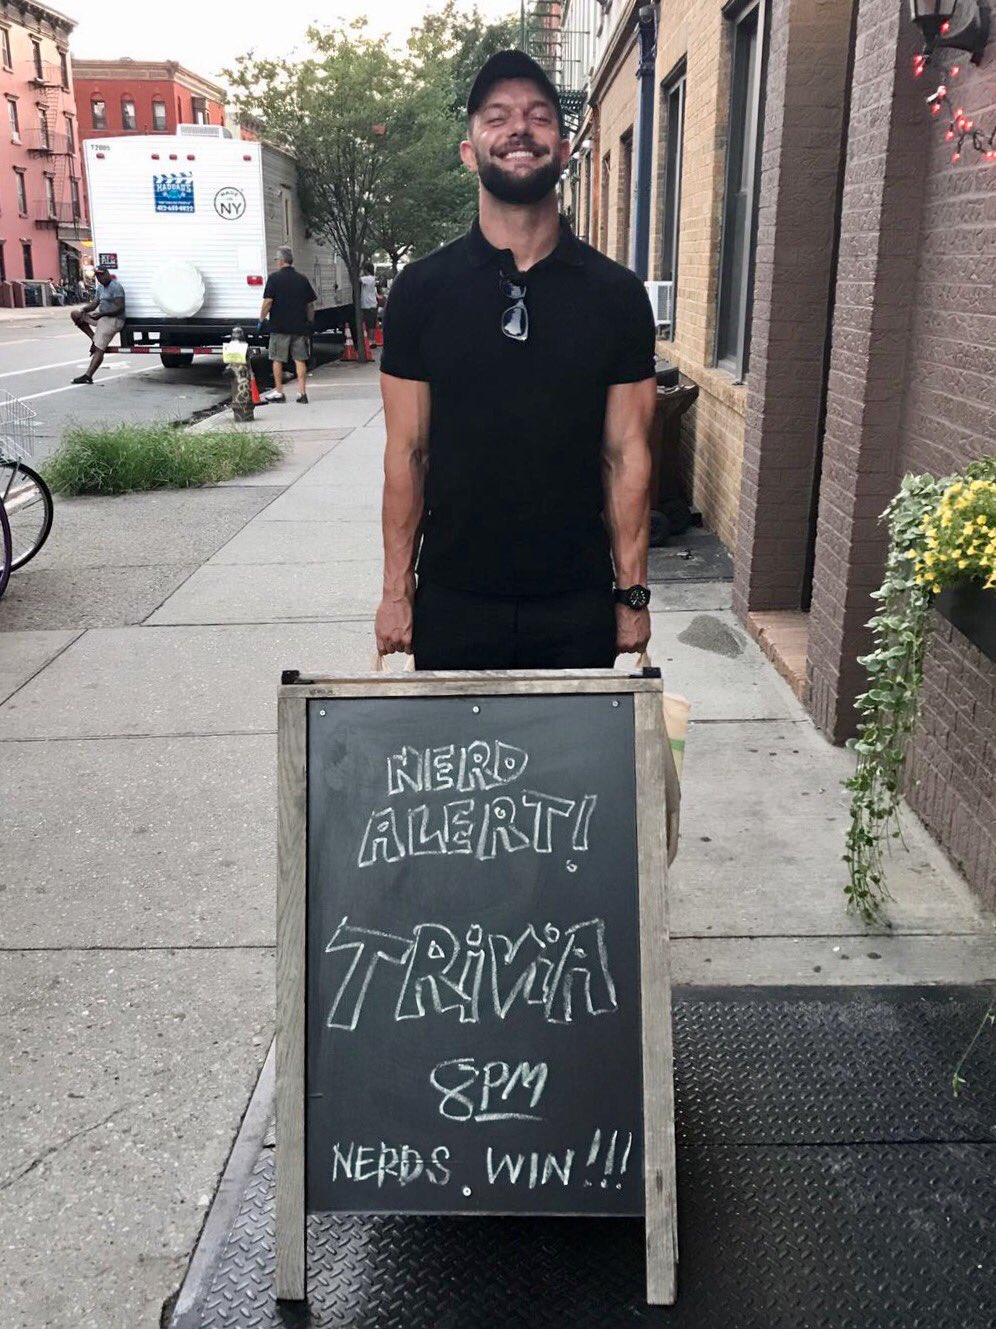 T2005
HADDAD'S
MADE IN
NY
NERD
ALERT!
TRiViA
8PM
NERDS WIN!!!